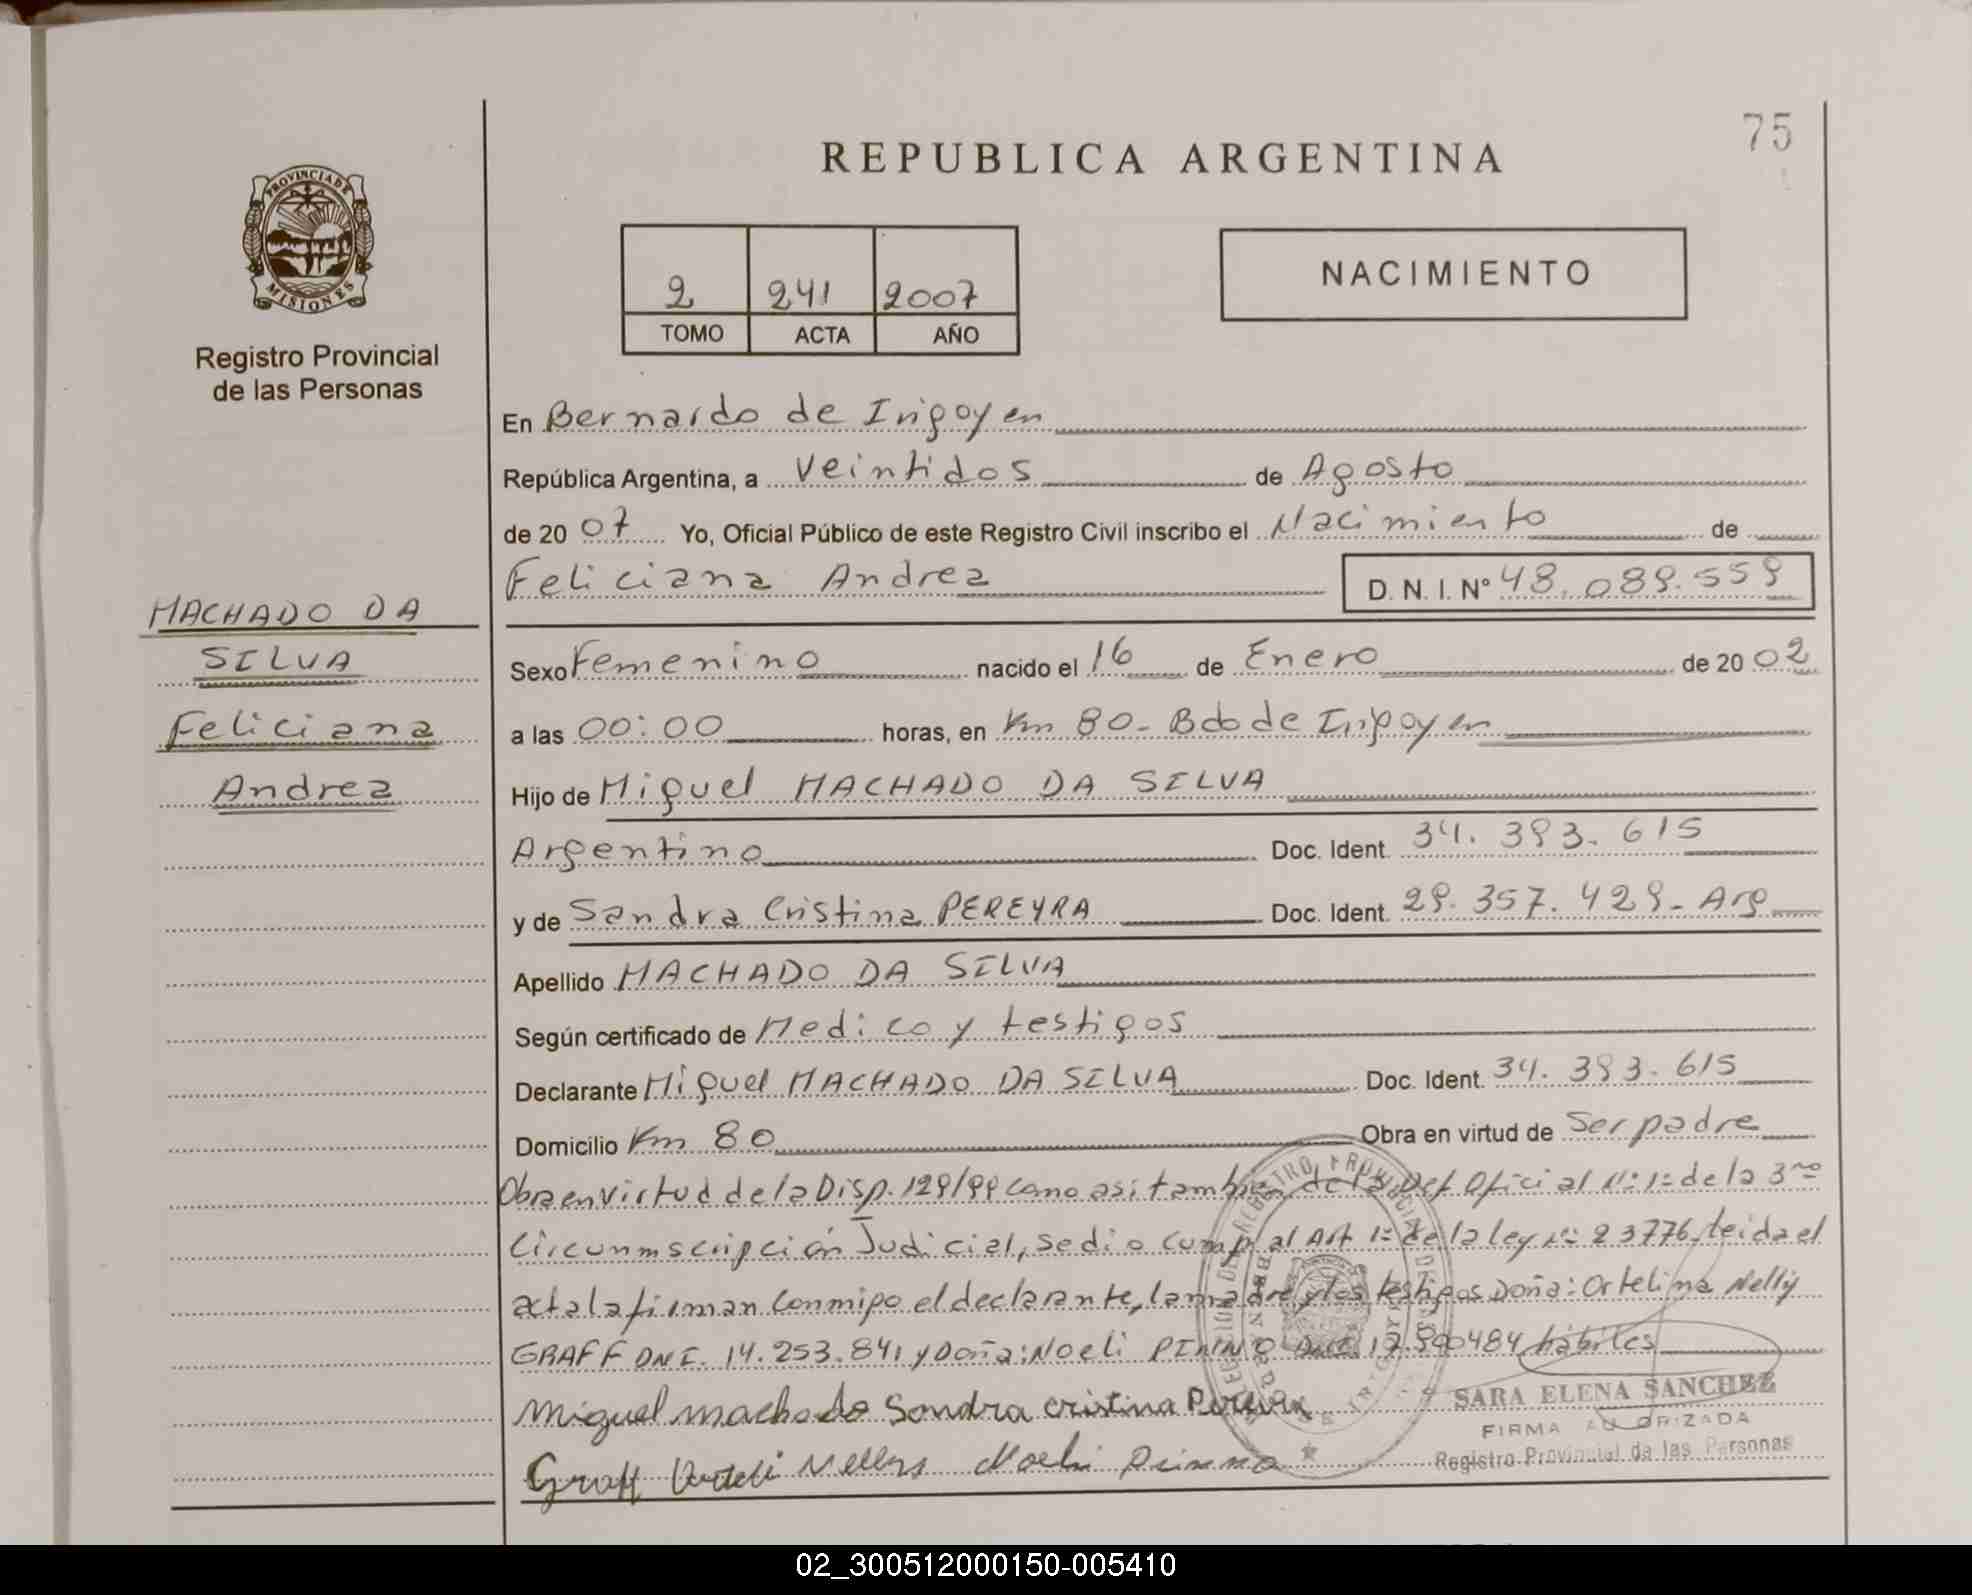 75
REPUBLICA ARGENTINA
PROVINCIA DE
MISIONES
Registro Provincial
de las Personas
2 241 2007
TOMO ACTA AÑO
NACIMIENTO
En Bernardo de Irigoyen
República Argentina, a Veintidos de Agosto
de 20 07 Yo, Oficial Público de este Registro Civil inscribo el Nacimiento de
Feliciana Andrea D. N. I. N° 48.089.559
MACHADO DA
SILVA
Feliciana
Andrea
Sexo Femenino nacido el 16 de Enero de 20 02
a las 00:00 horas, en Km 80- Bdo de Irigoyen
Hijo de Miguel MACHADO DA SILVA
Argentino Doc. Ident. 34. 393. 615
y de Sandra Cristina PEREYRA Doc. Ident. 29. 357. 429- Arg
Apellido MACHADO DA SILVA
Según certificado de Medico y testigos
Declarante Miguel MACHADO DA SILVA Doc. Ident. 34. 393. 615
Domicilio Km 80 Obra en virtud de Ser padre
Obra en virtud de la Disp. 129/99 como asi tambien de la Def Oficial N° 1° de la 3ra
Circunmscripción Judicial, se dio cump al Art 1° de la ley N° 23776. leida el
acta la firman conmigo el declarante, la madre y los testigos Doña: Ortelina Nelly
GRAFF DNI. 14.253.841 y Doña: Noeli hábiles
Miguel machado Sandra cristina Pereira
Graff Nellys Noeli
SARA ELENA SANCHEZ
FIRMA AUTORIZADA
Registro Provincial de las Personas
02_300512000150-005410